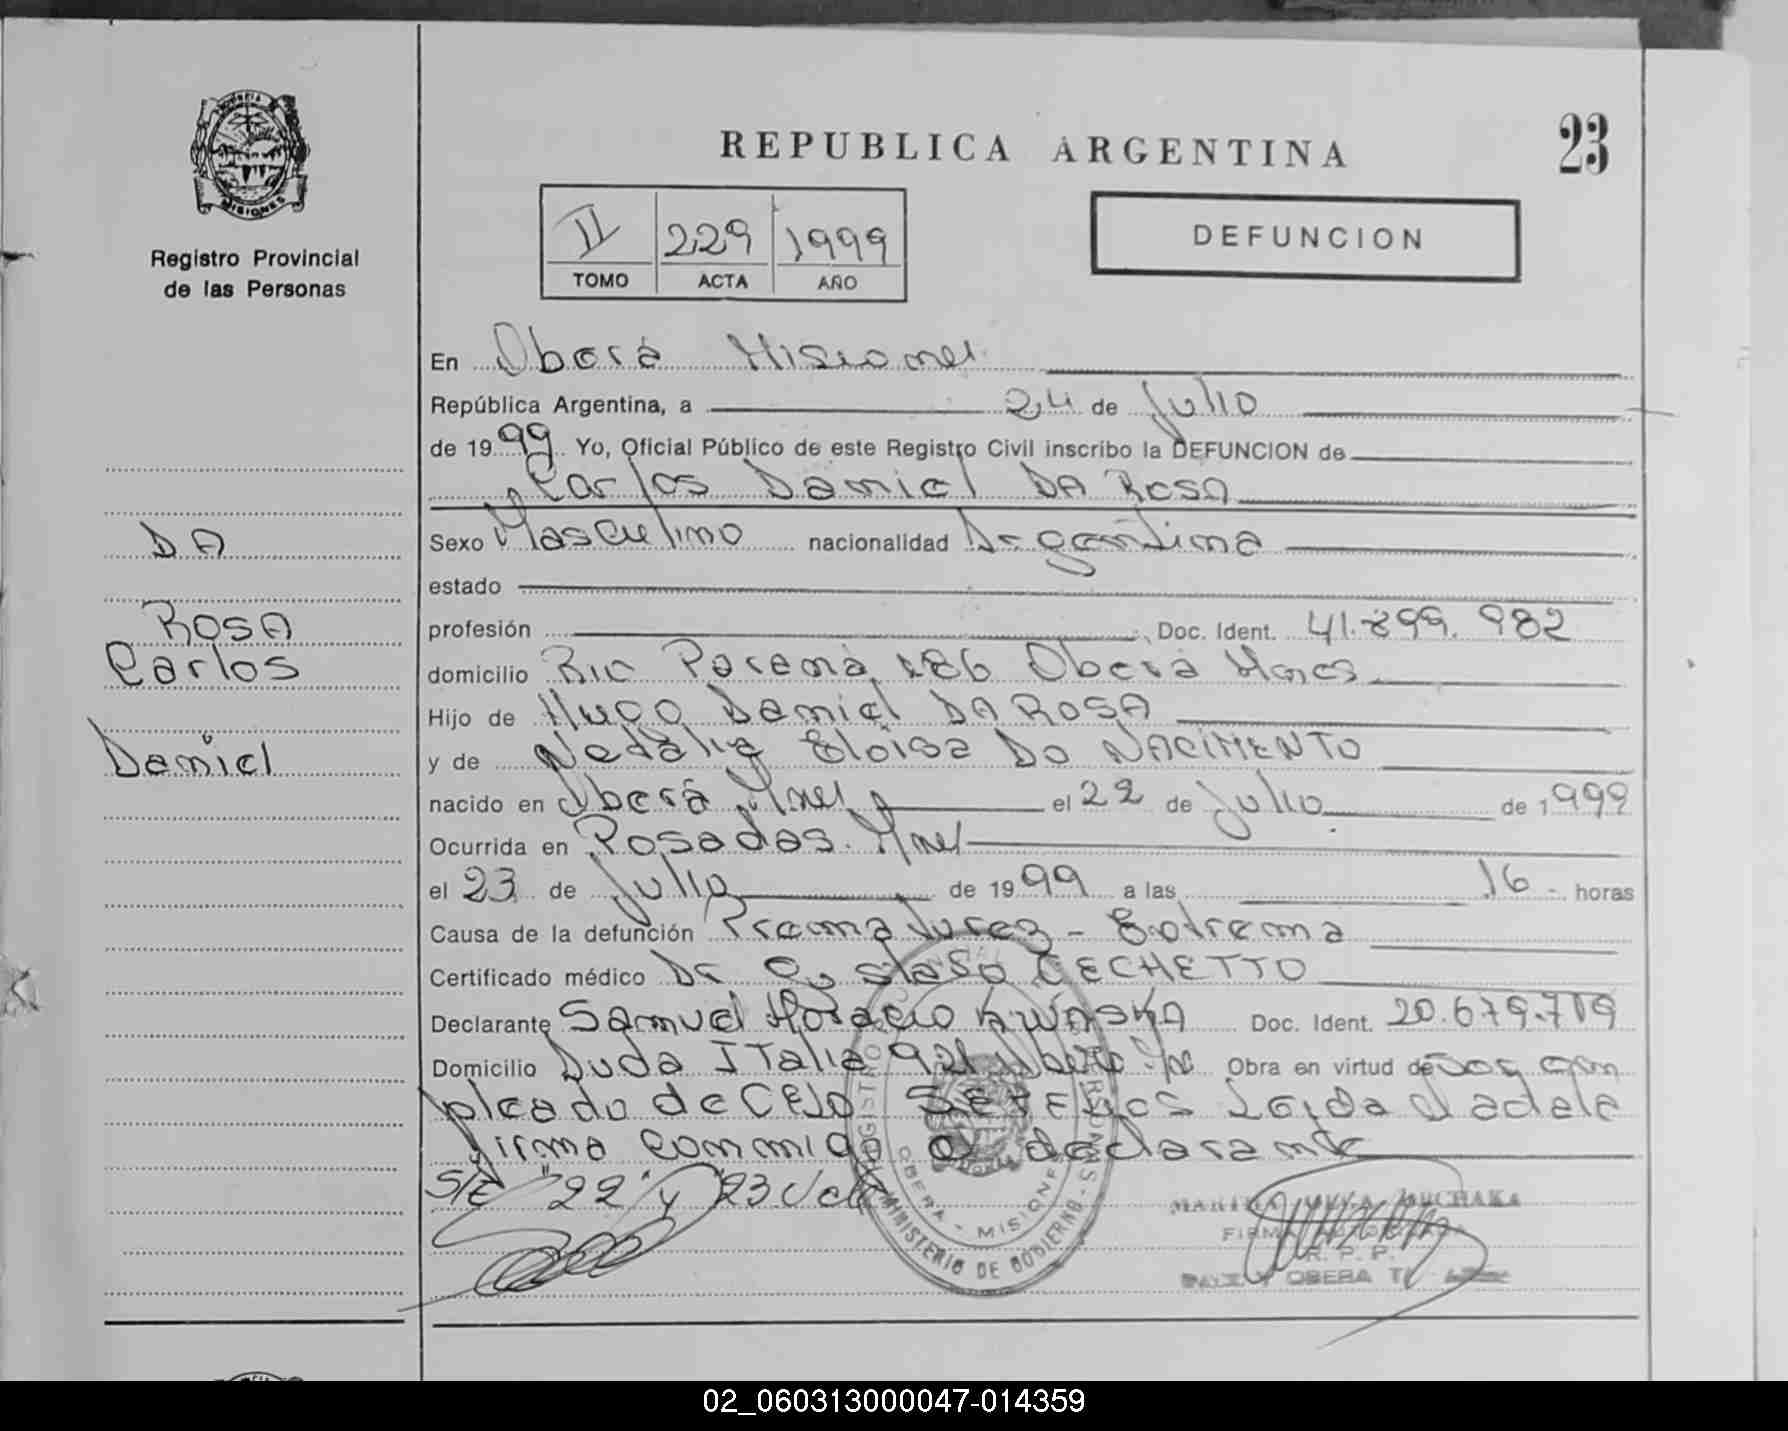 REPUBLICA ARGENTINA
23
MISIONES
Registro Provincial
de las Personas
II 229 1999
TOMO ACTA AÑO
DEFUNCION
En Oberá Misiones
República Argentina, a 24 de Julio
de 1999 Yo, Oficial Público de este Registro Civil inscribo la DEFUNCION de
Carlos Daniel DA ROSA
DA
ROSA
Carlos
Daniel
Sexo Masculino nacionalidad Argentina
estado
profesión Doc. Ident. 41.899.982
domicilio Rio Parana 186 Oberá Mnes
Hijo de Hugo Daniel DA ROSA
y de Natalia Eloisa DO NACIMENTO
nacido en Oberá Mnes el 22 de Julio de 1999
Ocurrida en Posadas. Mnes
el 23 de Julio de 1999 a las 16 - horas
Causa de la defunción Prematurez - Extrema
Certificado médico Dr CECHETTO
Declarante Samuel Horacio Doc. Ident. 20.679.719
Domicilio Avda ITalia 921 Oberá Obra en virtud de
pleado de CELO
firma conmigo el declarante
S/E "22" y "23 Vale
REGISTRO PROVINCIAL DE LAS PERSONAS
OBERA - MISIONES
MINISTERIO DE GOBIERNO
FIRMA AUTORIZADA
R. P. P.
OBERA
02_060313000047-014359